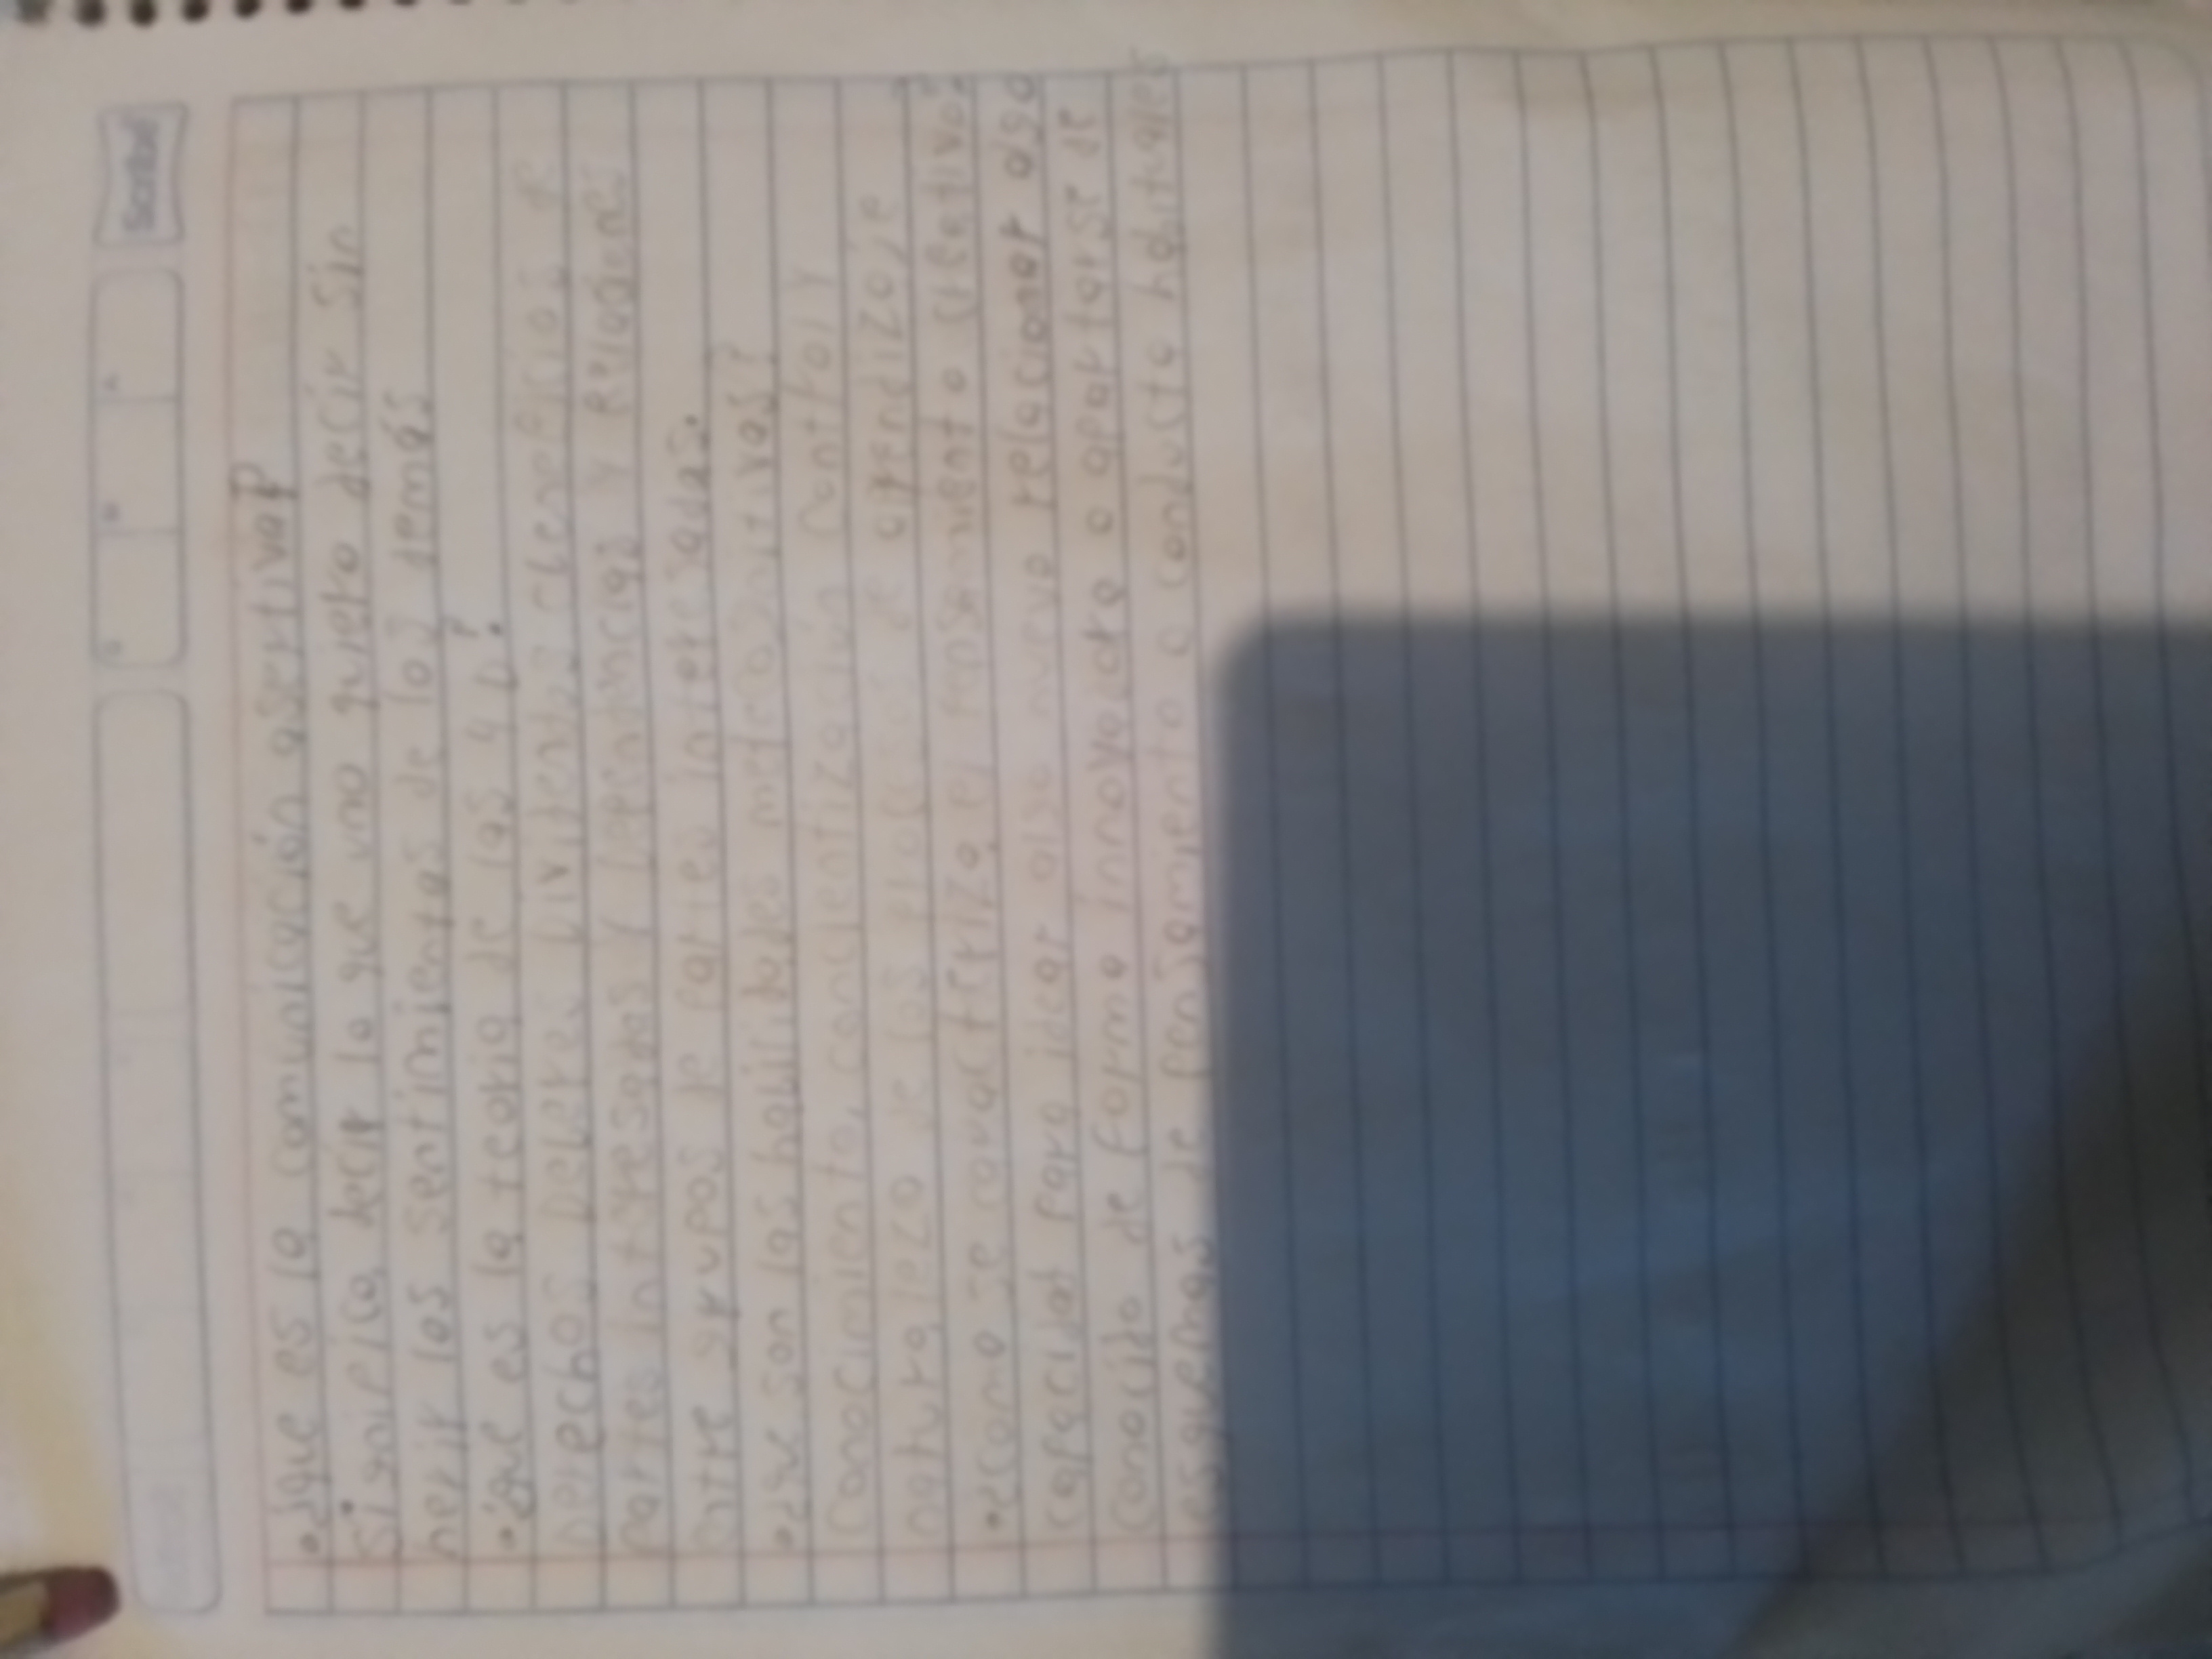 Scribe
•¿que es la comunicación asertiva?
Significa decir lo que uno quiero decir sin
herir los sentimientos de los demás
•¿que es la teoria de las 4 D?
Derechos Deberes Dividendos
partes interesadas y y
entre grupos de partes interesadas.
•¿que son las habilidades
conocimiento, concientización control y
naturaleza de los procesos de aprendizaje
•¿como se caracteriza el pensamiento creativo?
capacidad para idear algo nuevo relacionar algo
conocido de forma innovadora o apartarse de
esquemas de pensamiento o conducta habituales